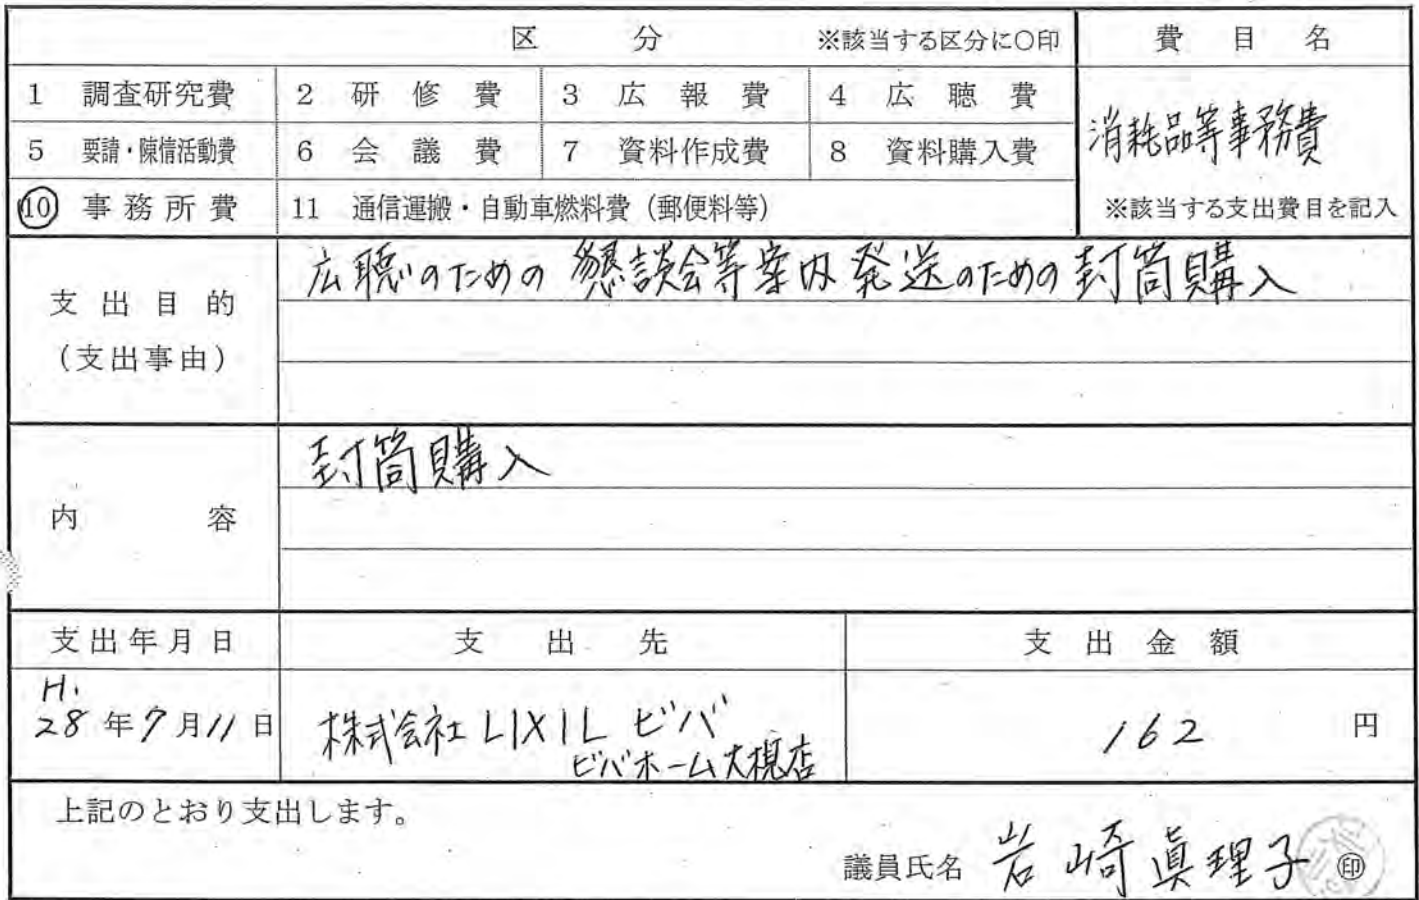 区 分 ※該当する区分に○印 費 目 名
1 調査研究費 2 研 修 費 3 広 報 費 4 広 聴 費
消耗品等事務費
5 要請・陳情活動費 6 会 議 費 7 資料作成費 8 資料購入費
10 事務所費 11 通信運搬・自動車燃料費（郵便料等） ※該当する支出費目を記入
支 出 目 的
（支出事由）
広聴のための 懇談会等案内発送のための封筒購入
内 容
封筒購入
支出年月日 支 出 先 支 出 金 額
H.
28年7月11日 株式会社LIXILビバ 162 円
ビバホーム大槻店
上記のとおり支出します。
議員氏名 岩崎眞理子 ㊞